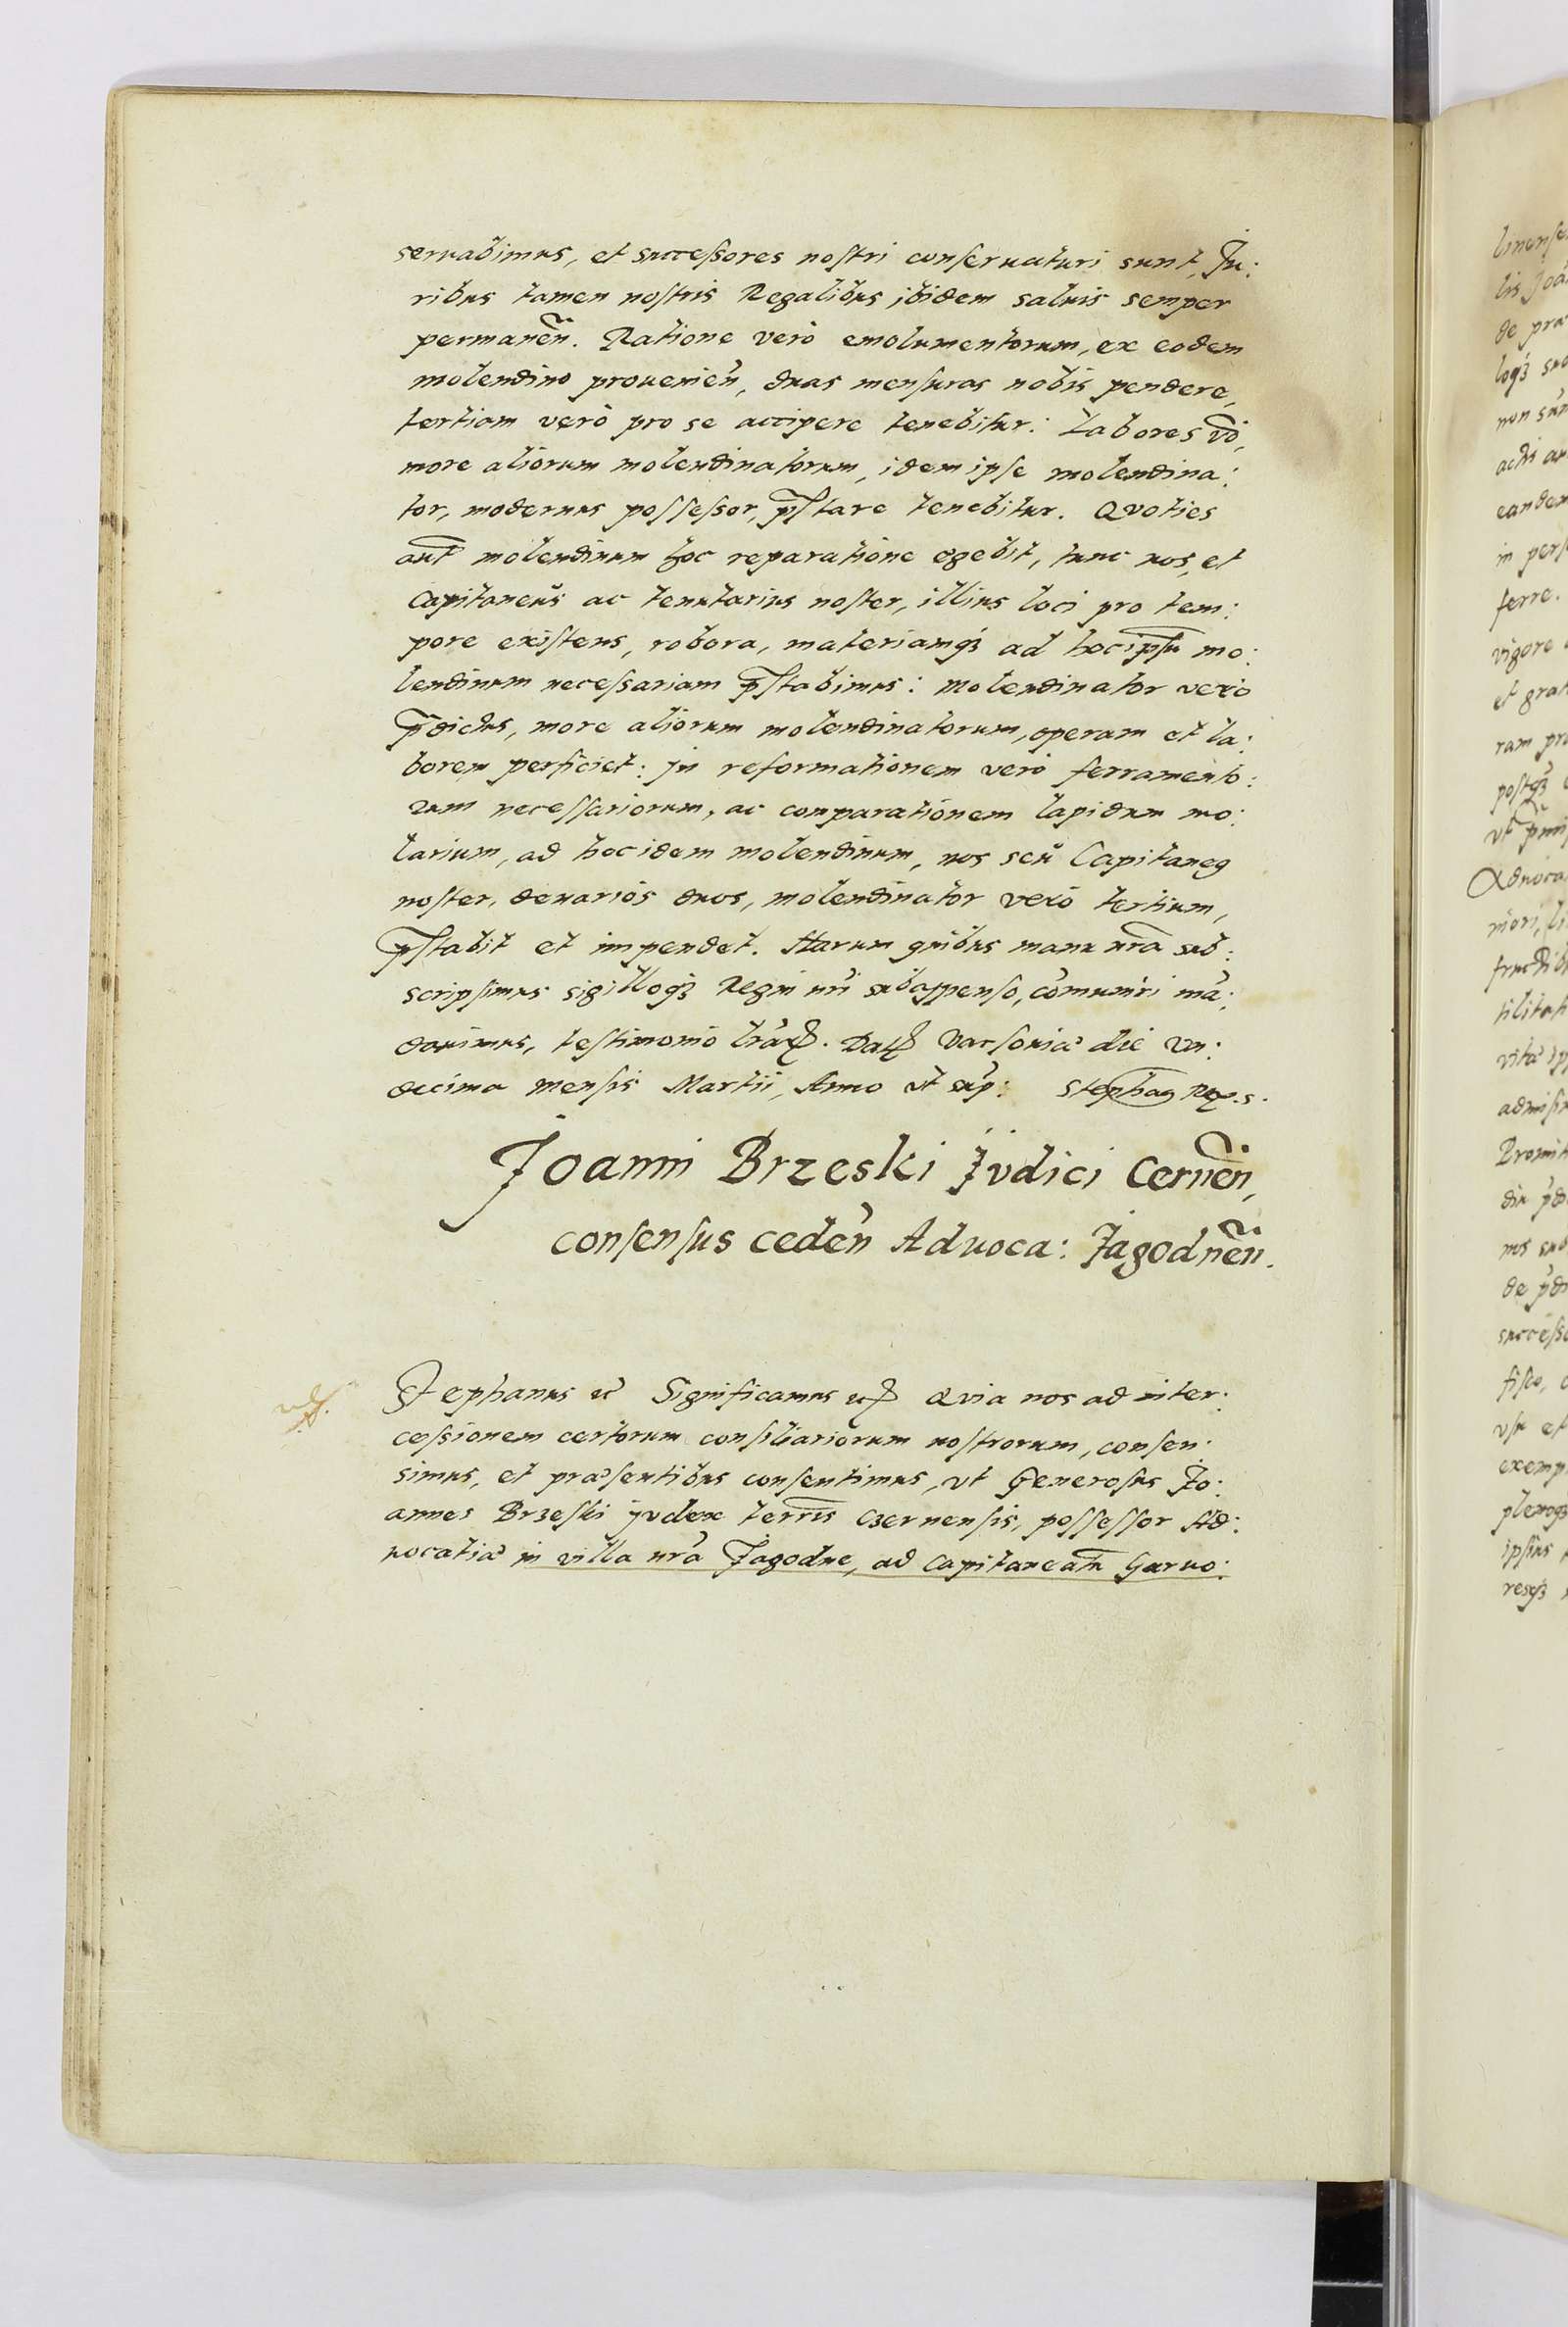 seruabimus, et successores nostri conseruaturi sunt, Ju:
ribus tamen nostris Regalibus ibidem saluis semper
permanen̄. Ratione verò emolumentorum, ex eodem
molendino prouenien̄, duas mensuras nobis pendere,
tertiam verò pro se accipere tenebitur: Labores vō,
more aliorum molendinatorum, idem ipse molendina:
tor, modernus possessor, p̄stare tenebitur. Qvoties
aut̄ molendinum hoc reparatione egebit, tunc nos, et
Capitaneus ac tenutarius noster, illius loci pro tem:
pore existens, robora, materiamqꝫ ad hoc ip̄su mo:
lendinum necessariam p̄stabimus: Molendinator verò
p̄dictus, more aliorum molendinatorum, operam et la:
borem perficiet: in reformationem verò ferramento:
rum necessariorum, ac comparationem lapidum mo:
larium, ad hoc idem molendinum, nos seu Capitaneꝰ
noster, denarios duos, molendinator verò tertium,
p̄stabit et impendet. Harum quibus manu nr̄a sub:
scripsimus sigilloqꝫ Regni nr̄i subappenso, com̄uniri mā:
dauimus, testimonio lrāꝝ. Datꝭ Varsouiæ die Vn:
decima mensis Martii, Anno vt sup̄: Stephaꝰ Rex. s.
Joanni Brzeski Jvdici Cernen̄,
consensus ceden̄ Aduoca: Jagodnen̄.
Stephanus ꝛc̄ Significamus ꝛcꝭ Qvia nos ad inter:
cessionem certorum consiliariorum nostrorum, consen:
simus, et præsentibus consentimus, vt Generosus Jo:
annes Brzeski jvdex terrīs Czernensis, possessor Ad:
uocatiæ in villa nr̄a Jagodne, ad Capitaneatū Garuo:
linense
lis Joa
de præ
loqꝫ suo
non sun
actis au
eandem
in pers
ferre.
vigore
et grat
ram pro
postqꝫ
Aduoca
niori, li
tilitati
vitæ ip
admisi
Promit
de p̄di
success
fisco,
vsu et
exemp
plenoqꝫ
ipsius
resqꝫ